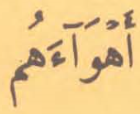 أَهْوَآءَهُم